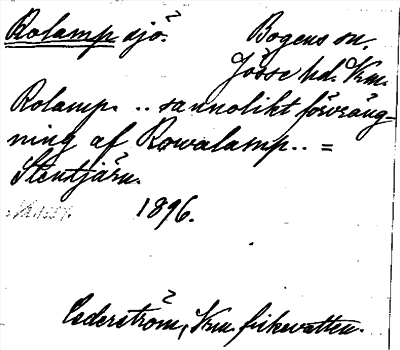 Rolamp sjö. Bogens sn.
Jösse hd. Vrm.
Rolamp. .. sannolikt förvräng-
ning af Rowalamp.. =
Stentjärn.
1896.
Cederström, Vrm. fiskevatten.